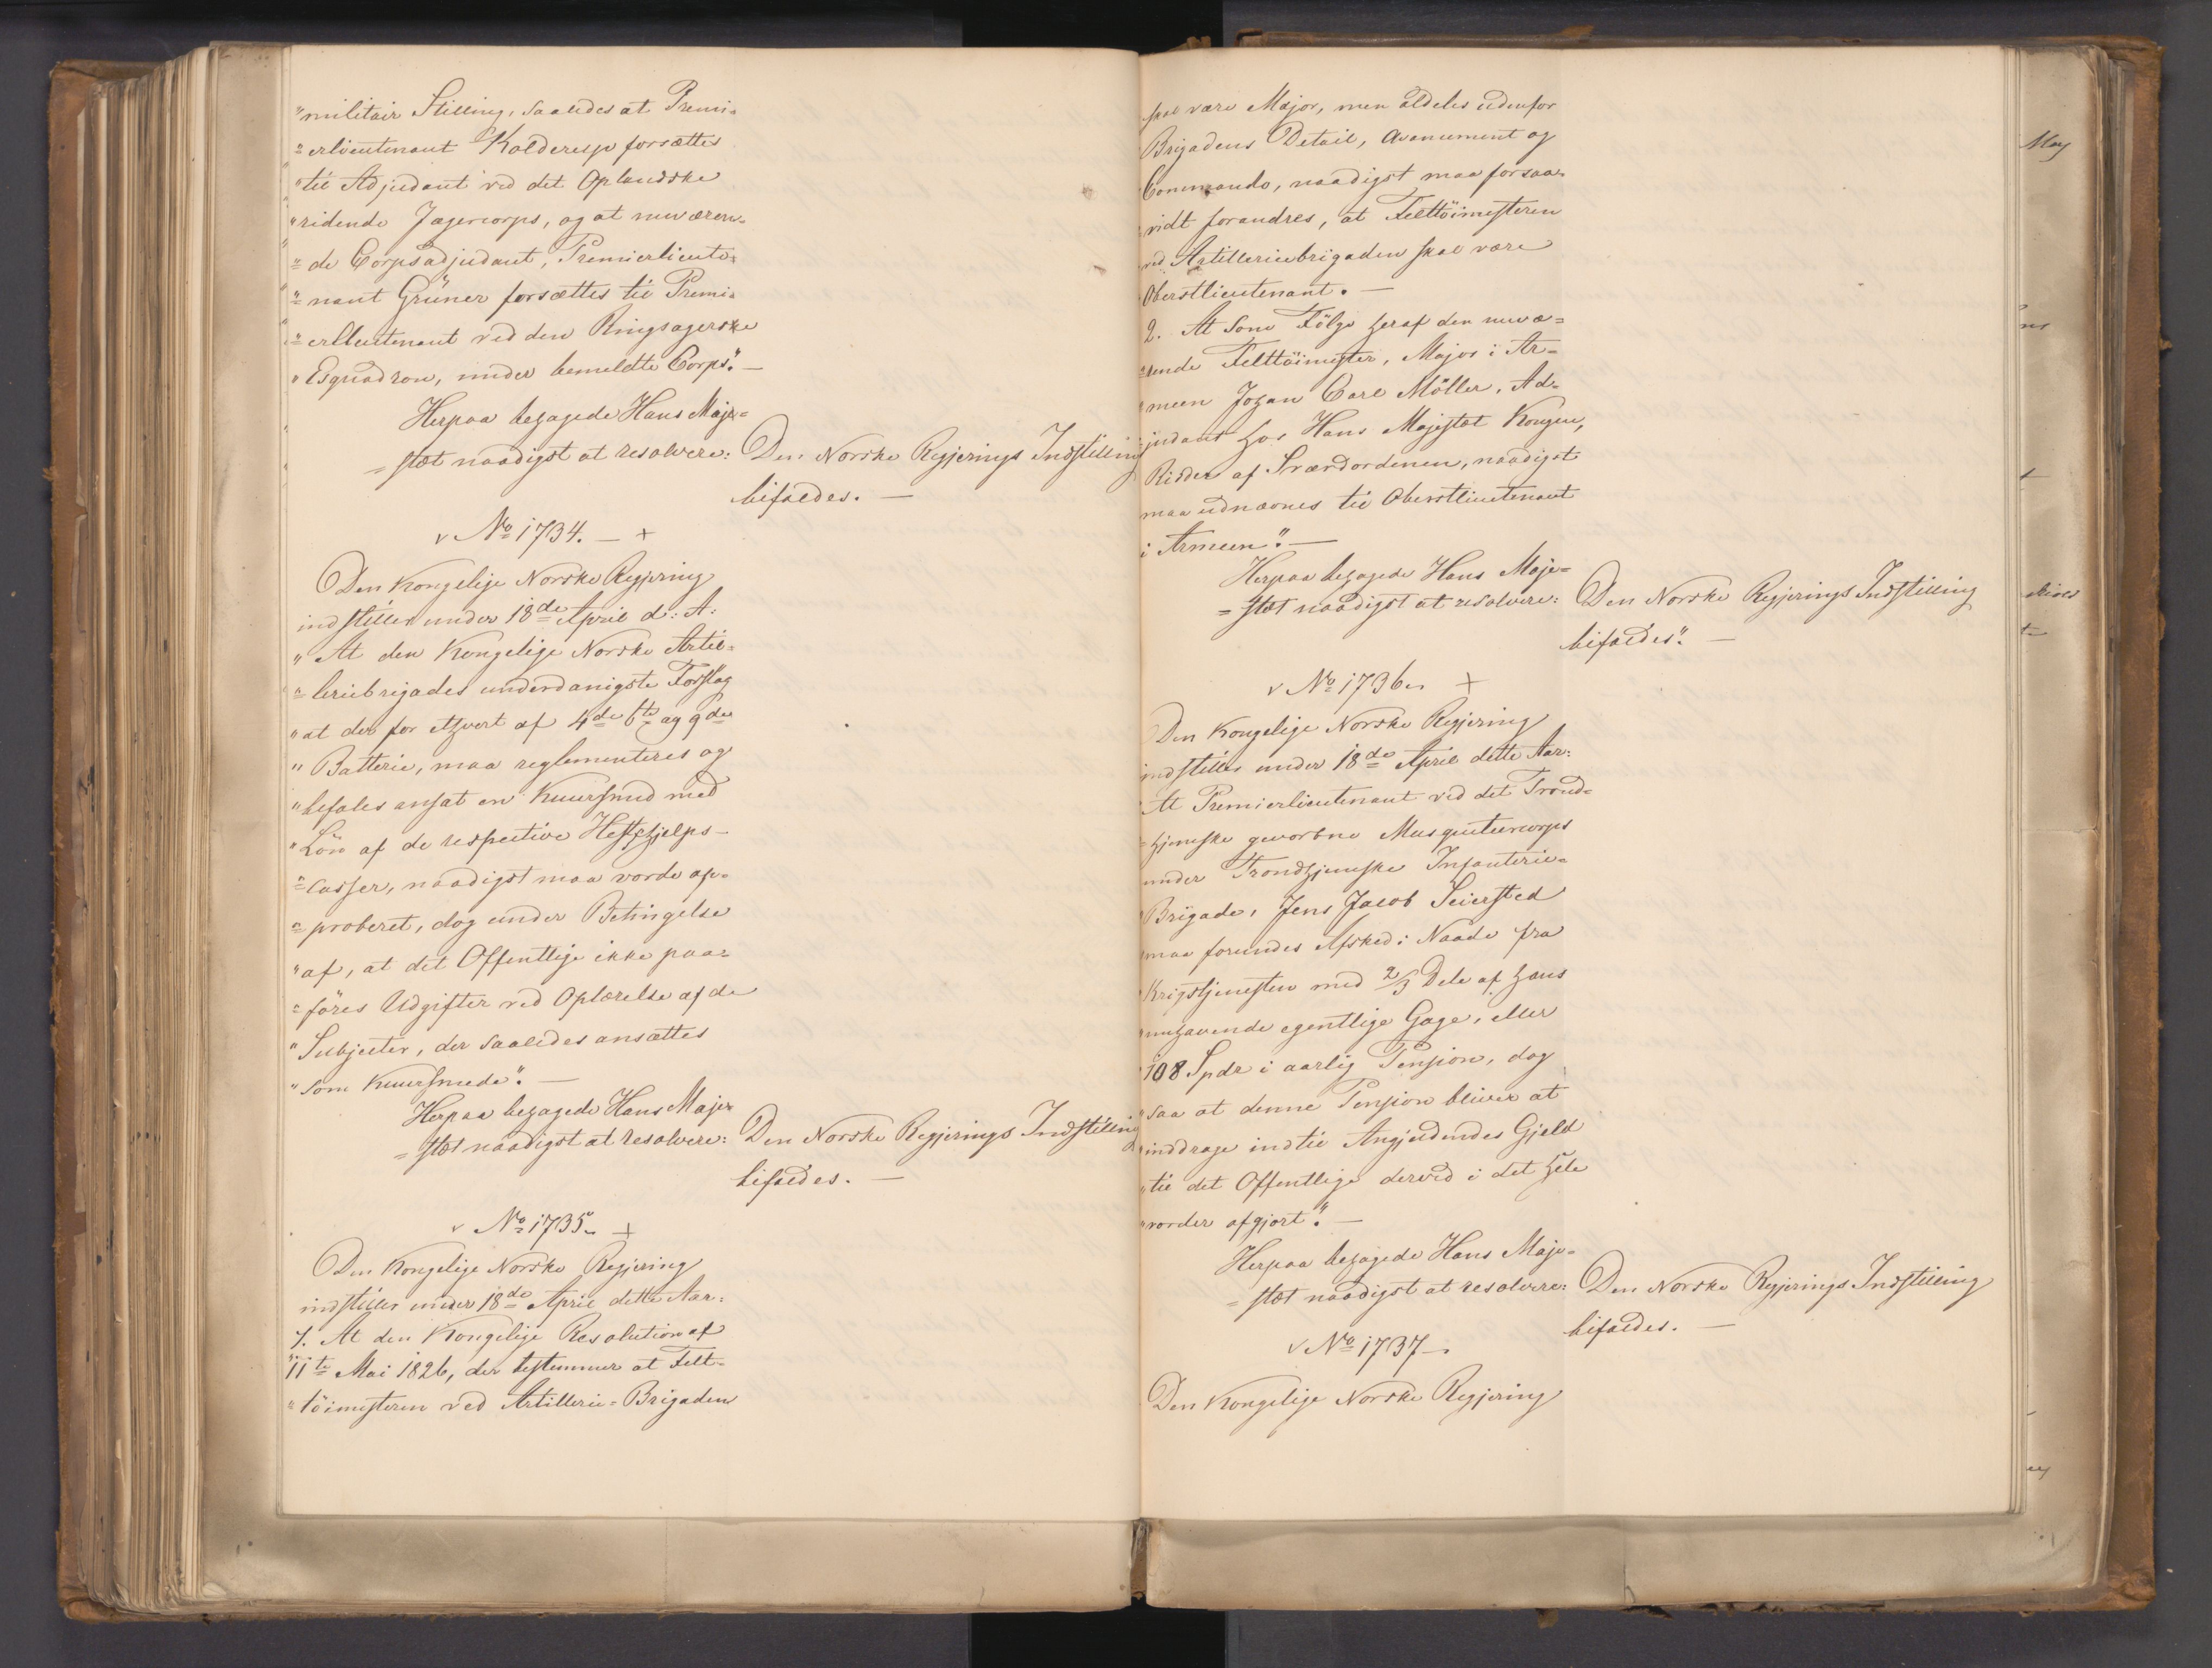 "militair Stilling, saaledes at Premi-
"erlieutenant Kolderup forsættes
"til Adjudant ved det Oplandske
"ridende Jægercorps, og at nuværen-
"de Corpsadjudant, Premierlieute-
"nant Grüner forsættes til Premi-
"erlieutenant ved den Ringsagerske
"Esquadron, under bemeldte Corps." —
Herpaa behagede Hans Maje-
= stæt naadigst at resolvere: Den Norske Regjerings Indstilling
bifaldes. —
v No 1734. — +
Den Kongelige Norske Regjering
indstiller under 18de April d: A:
"At den Kongelige Norske Artil-
"leriebrigades underdanigste Forslag
"at der for ethvert af 4de 6te og 9de
"Batterie, maa reglementeres og
"befales ansat en Kuursmed med
"Løn af de respective Hestehjelps-
"casser, naadigst maa vorde ap-
"proberet, dog under Betingelse
"af, at det Offentlige ikke paa-
"føres Udgifter ved Oplærelse af de
"Subjecter, der saaledes ansættes
"som Kuursmede". —
Herpaa behagede Hans Maje-
= stæt naadigst at resolvere: Den Norske Regjerings Indstilling
bifaldes. —
v No 1735. +
Den Kongelige Norske Regjering
indstiller under 18de April dette Aar:
1. At den Kongelige Resolution af
"11te Mai 1826, der bestemmer at Felt-
"töimesteren ved Artillerie-Brigaden
skal være Major, men aldeles udenfor
Brigadens Detail, Avancement og
Commando, naadigst maa forsaa-
vidt forandres, at Felttöimesteren
ved Artilleriebrigaden skal være
Oberstlieutenant. —
2. At som Fölge heraf den nuvæ-
rende Felttöimester, Major i Ar-
meen Johan Carl Möller, Ad-
judant hos Hans Majestæt Kongen,
Ridder af Sværdordenen, naadigst
maa udnævnes til Oberstlieutenant
i Armeen". —
Herpaa behagede Hans Maje-
= stæt naadigst at resolvere: Den Norske Regjerings Indstilling
bifaldes". —
v No 1736. +
Den Kongelige Norske Regjering
indstiller under 18de April dette Aar:
At Premierlieutenant ved det Trond-
hjemske gevorbne Musqueteercorps
under Trondhjemske Infanterie-
Brigade, Jens Jacob Seiersted
maa forundes Afsked i Naade fra
Krigstjenesten med 2/3 Dele af hans
nuhavende egentlige Gage, eller
108 Spdr i aarlig Pension, dog
saa at denne Pension bliver at
inddrage indtil Angjeldendes Gjeld
"til det Offentlige derved i det Hele
"vorder afgjort". —
Herpaa behagede Hans Maje-
= stæt naadigst at resolvere: Den Norske Regjerings Indstilling
bifaldes. —
v No 1737 —
Den Kongelige Norske Regjering